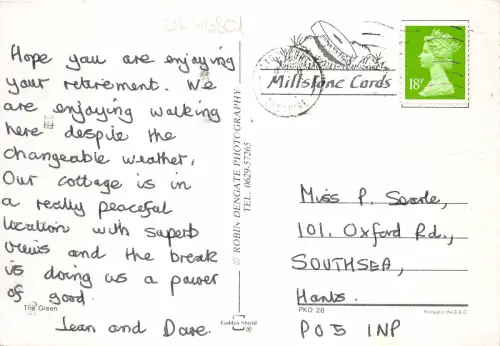 UK 46801
Hope you are enjoying
your retirement. We
are enjoying walking
here despite the
changeable weather.
Our cottage is in
a really peaceful
location with superb
views and the break
is doing us a power
of good.
The Green
Jean and Dave.
© ROBIN DENGATE PHOTOGRAPHY
TEL. 0629-57265
Golden Shield
®
Millstone Cards
18P
Miss P. Searle,
101, Oxford Rd.,
SOUTHSEA,
Hants.
PKD 28
Printed in the E.E.C
PO5 1NP